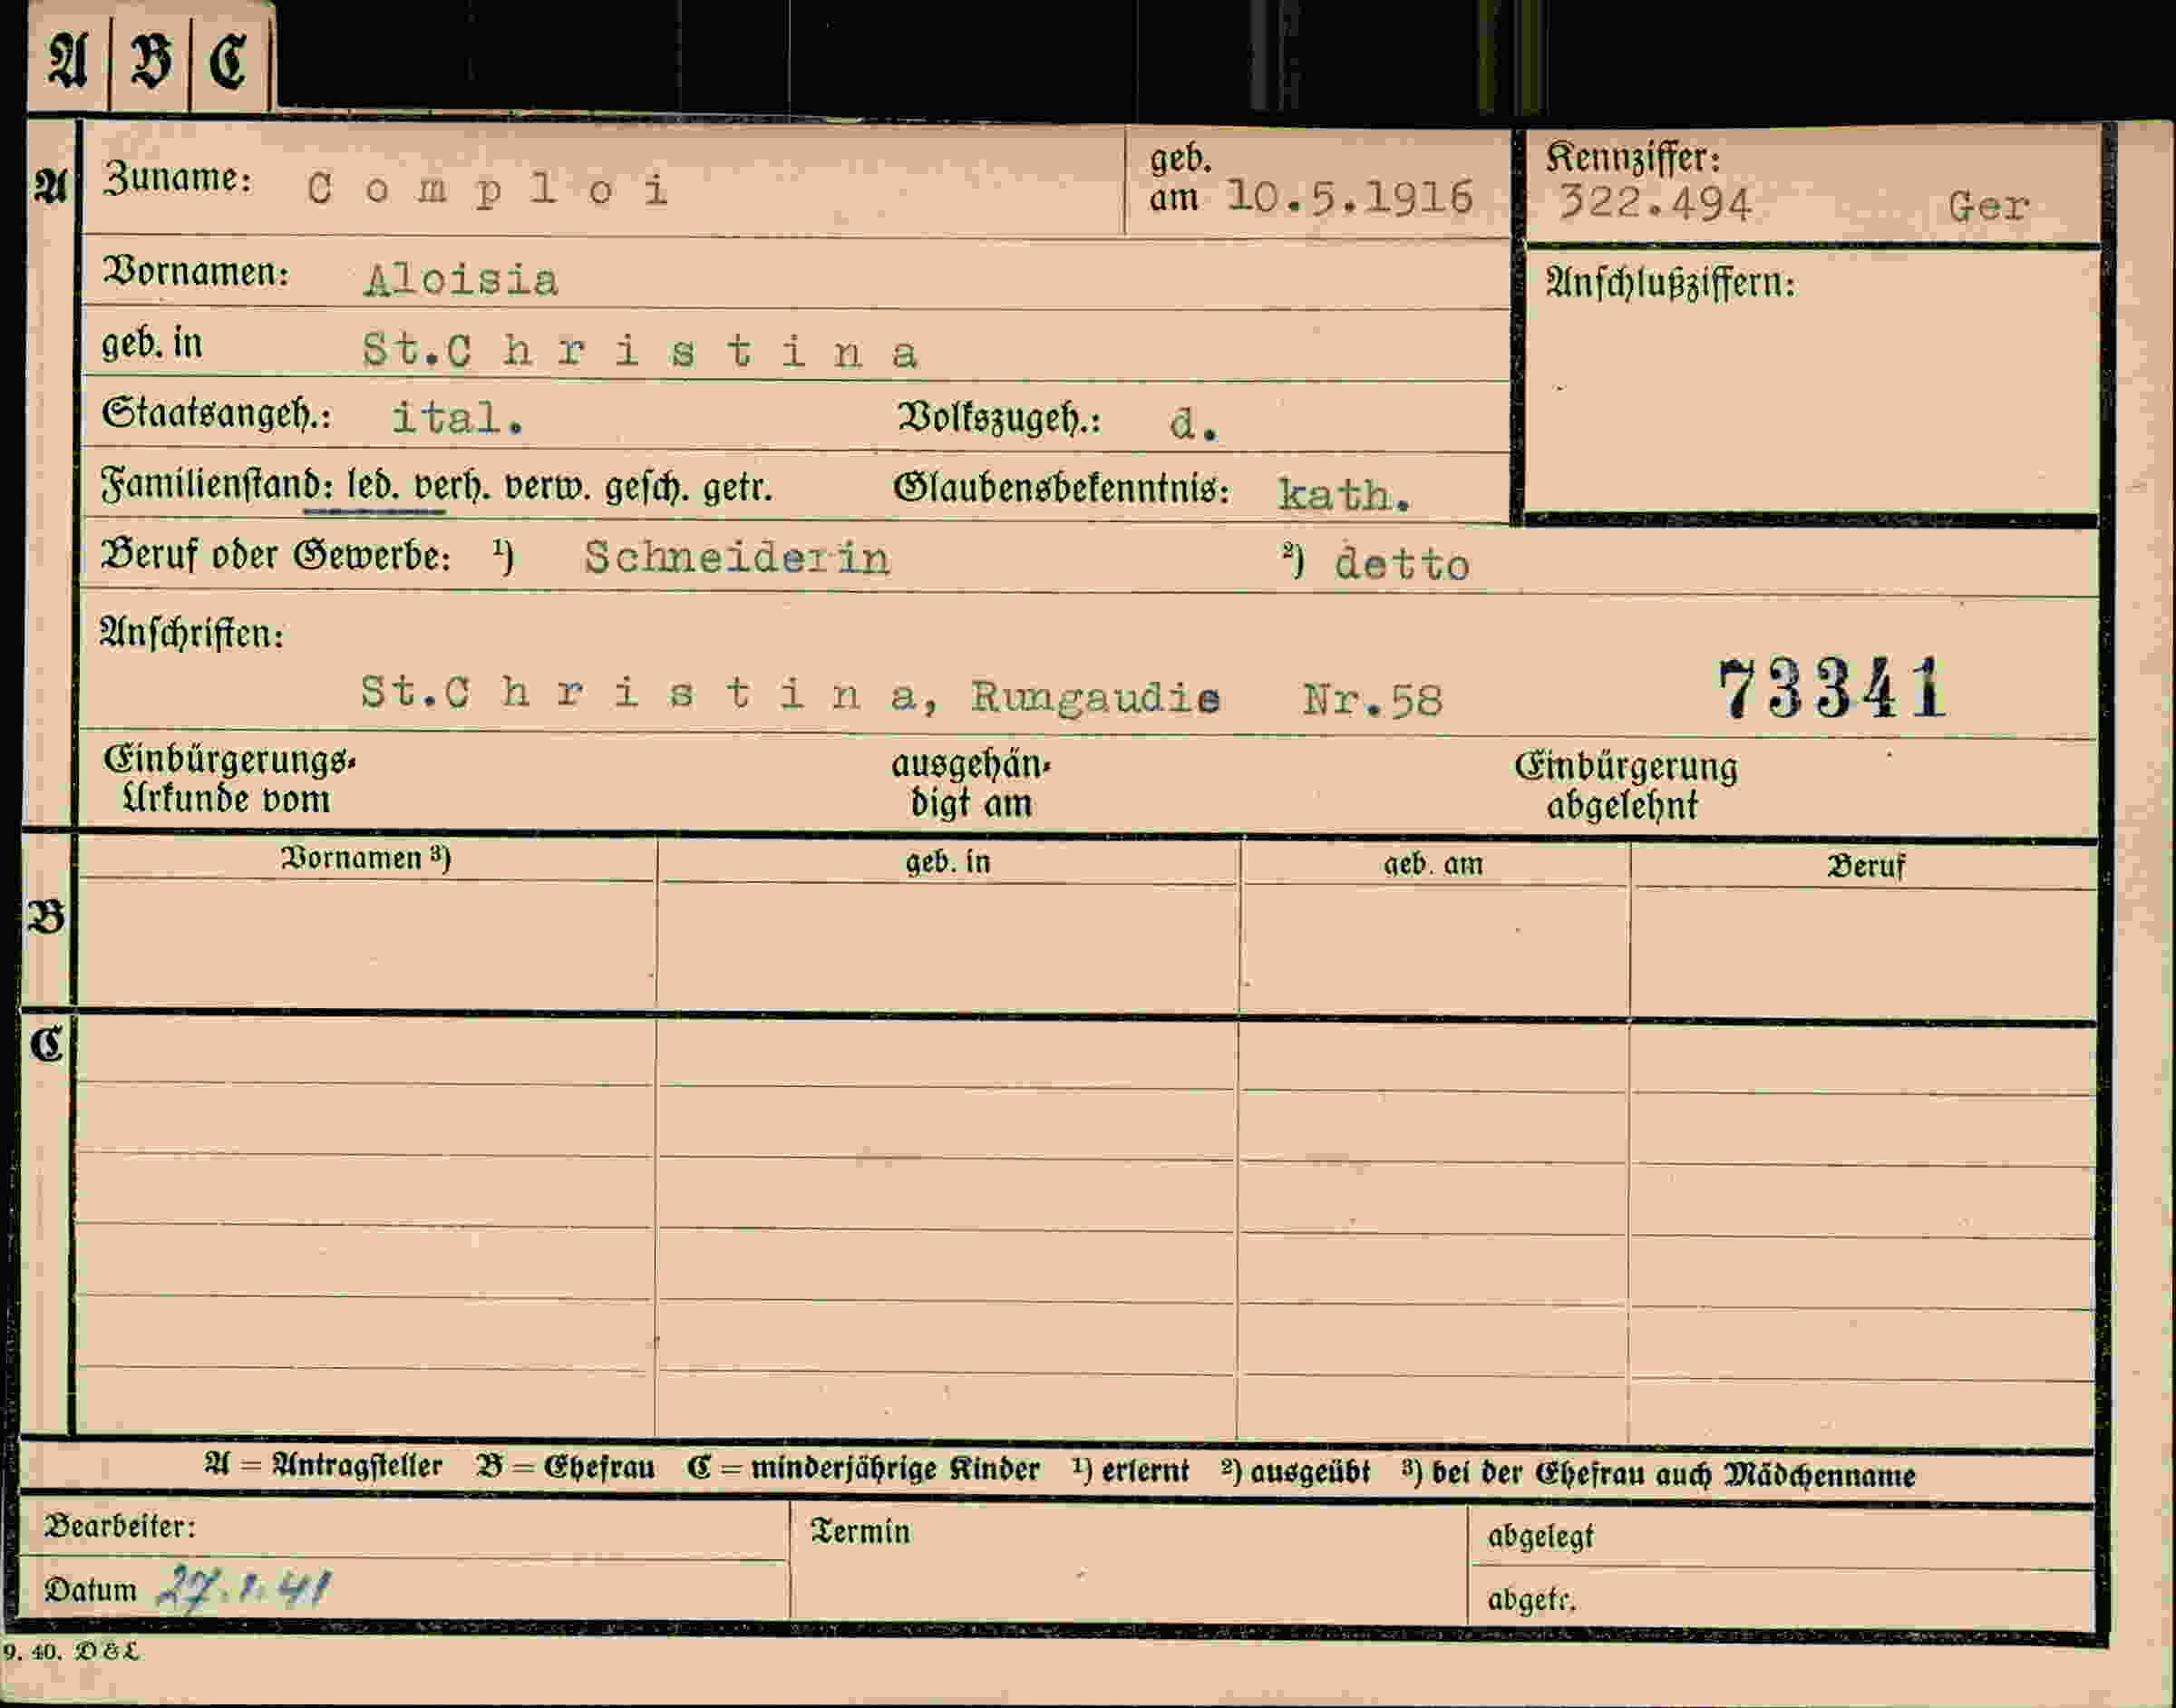 A B C
A Zuname: Comploi geb. am 10.5.1916 Kennziffer: 322.494 Ger
Vornamen: Aloisia Anschlußziffern:
geb. in St.Christina
Staatsangeh.: ital. Volkszugeh.: d.
Familienstand: led. verh. verw. gesch. getr. Glaubensbekenntnis: kath.
Beruf oder Gewerbe: ¹) Schneiderin ²) detto
Anschriften:
St.Christina, Rungaudie Nr.58 73341
Einbürgerungs- ausgehän- Einbürgerung
Urkunde vom digt am abgelehnt
Vornamen ³) geb. in geb. am Beruf
B
C
A = Antragsteller B = Ehefrau C = minderjährige Kinder ¹) erlernt ²) ausgeübt ³) bei der Ehefrau auch Mädchenname
Bearbeiter: Termin abgelegt
Datum 27.1.41 abgetr.
9. 40. D & L